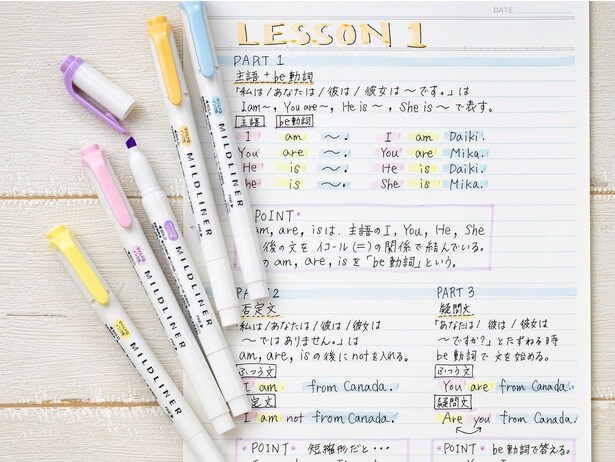 DATE
LESSON 1
PART 1
主語 + be動詞
「私は/あなたは/彼は/彼女は〜です。」は
I am〜, You are〜, He is〜, She is〜で表す。
主語 be動詞
I am 〜. I am Daiki.
You are 〜. You are Mika.
He is 〜. He is Daiki.
She is 〜. She is Mika.
POINT
am, are, isは、主語のI, You, He, She
後の文をイコール(=)の関係で結んでいる。
のam, are, isを「be動詞」という。
2
否定文
私は/あなたは/彼は/彼女は
〜ではありません。」は
am, are, isの後にnotを入れる。
ふつう文
I am from Canada.
定文
I am not from Canada.
POINT 短縮形だと…
PART 3
疑問文
「あなたは/彼は/彼女は
〜ですか?」とたずねる時
be動詞で文を始める。
ふつう文
You are from Canada.
疑問文
Are you from Canada.
POINT be動詞で答える。
MILDLINER
MILDLINER
MILDLINER
MILDLINER
MILDLINER